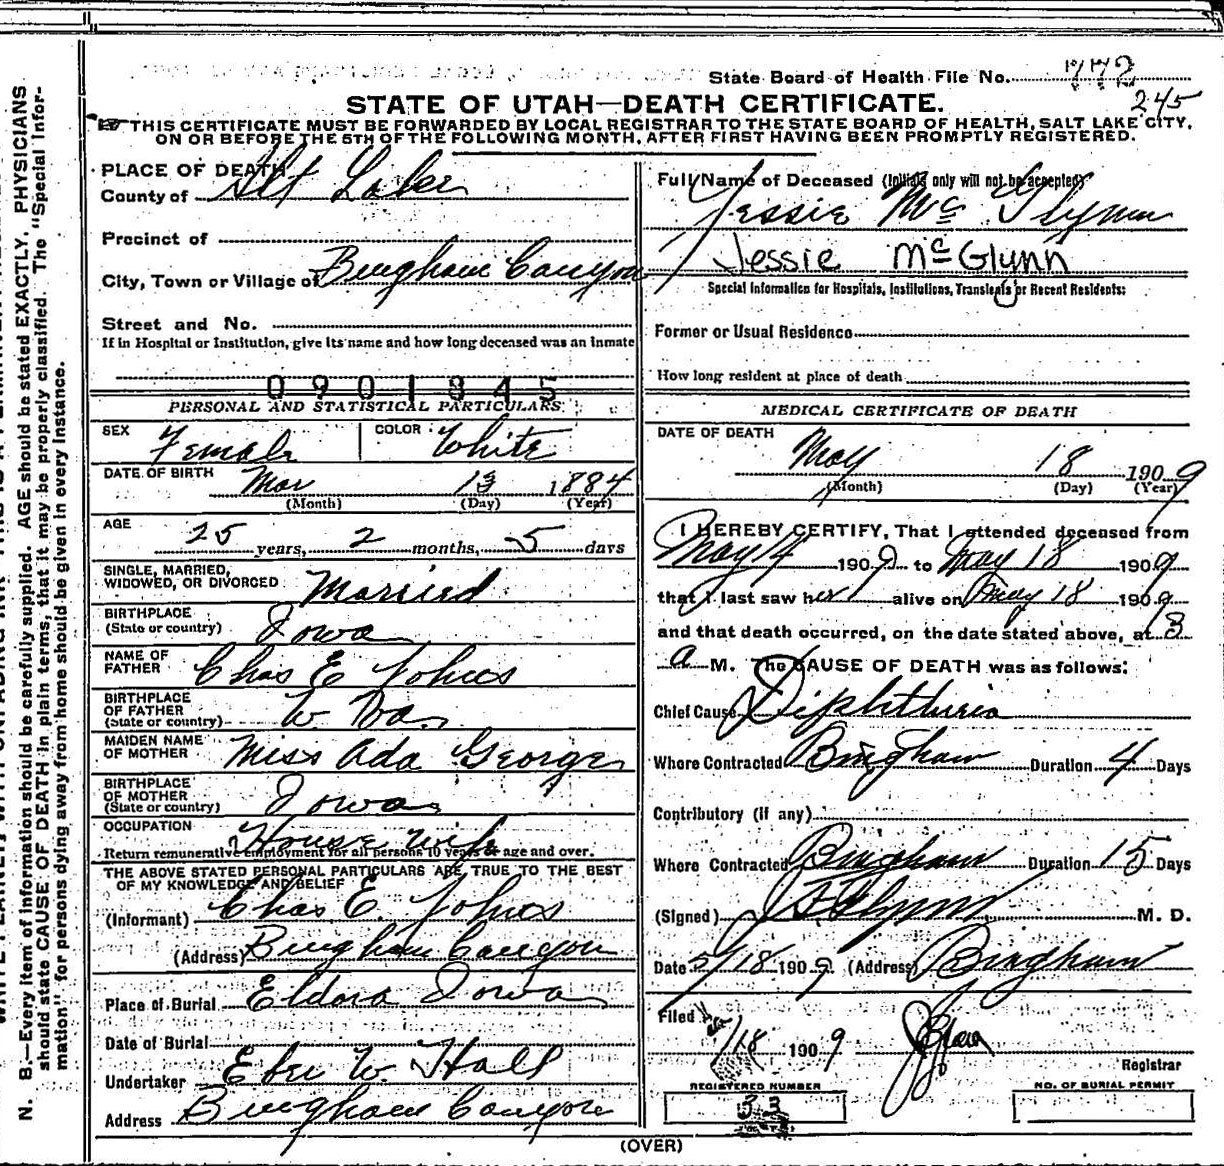 State Board of Health File No. 772
245
STATE OF UTAH—DEATH CERTIFICATE.
THIS CERTIFICATE MUST BE FORWARDED BY LOCAL REGISTRAR TO THE STATE BOARD OF HEALTH, SALT LAKE CITY,
ON OR BEFORE THE 5TH OF THE FOLLOWING MONTH, AFTER FIRST HAVING BEEN PROMPTLY REGISTERED.
N. B.—Every item of information should be carefully supplied. AGE should be stated EXACTLY. PHYSICIANS
should state CAUSE OF DEATH in plain terms, that it may be properly classified. The "Special Infor-
mation" for persons dying away from home should be given in every instance.
PLACE OF DEATH
County of Slt Lake
Precinct of
City, Town or Village of Bingham Canyon
Street and No.
If in Hospital or Institution, give its name and how long deceased was an inmate
0901345
PERSONAL AND STATISTICAL PARTICULARS
SEX Female COLOR White
DATE OF BIRTH Mar 13 1884
(Month) (Day) (Year)
AGE
25 years, 2 months, 5 days
SINGLE, MARRIED,
WIDOWED, OR DIVORCED Married
BIRTHPLACE
(State or country) Iowa
NAME OF
FATHER Chas E Johns
BIRTHPLACE
OF FATHER
(State or country) W Va
MAIDEN NAME
OF MOTHER Miss Ada George
BIRTHPLACE
OF MOTHER
(State or country) Iowa
OCCUPATION House wife
Return remunerative employment for all persons 10 years of age and over.
THE ABOVE STATED PERSONAL PARTICULARS ARE TRUE TO THE BEST
OF MY KNOWLEDGE AND BELIEF
(Informant) Chas E. Johns
(Address) Bingham Canyon
Place of Burial Eldora Iowa
Date of Burial
Undertaker Eber W. Hall
Address Bingham Canyon
Full Name of Deceased (Initials only will not be accepted)
Jessie Mc Glynn
Jessie McGlynn
Special Information for Hospitals, Institutions, Transients or Recent Residents:
Former or Usual Residence
How long resident at place of death
MEDICAL CERTIFICATE OF DEATH
DATE OF DEATH
May 18 1909
(Month) (Day) (Year)
I HEREBY CERTIFY, That I attended deceased from
May 4 1909 to May 18 1909
that I last saw her alive on May 18 1909
and that death occurred, on the date stated above, at
a M. The CAUSE OF DEATH was as follows:
Chief Cause Diphtheria
Where Contracted Bingham Duration 4 Days
Contributory (if any)
Where Contracted Bingham Duration 15 Days
(Signed) M. D.
Date 5/18 1909 (Address) Bingham
Filed 5/18 1909
Registrar
REGISTERED NUMBER
33
NO. OF BURIAL PERMIT
(OVER)